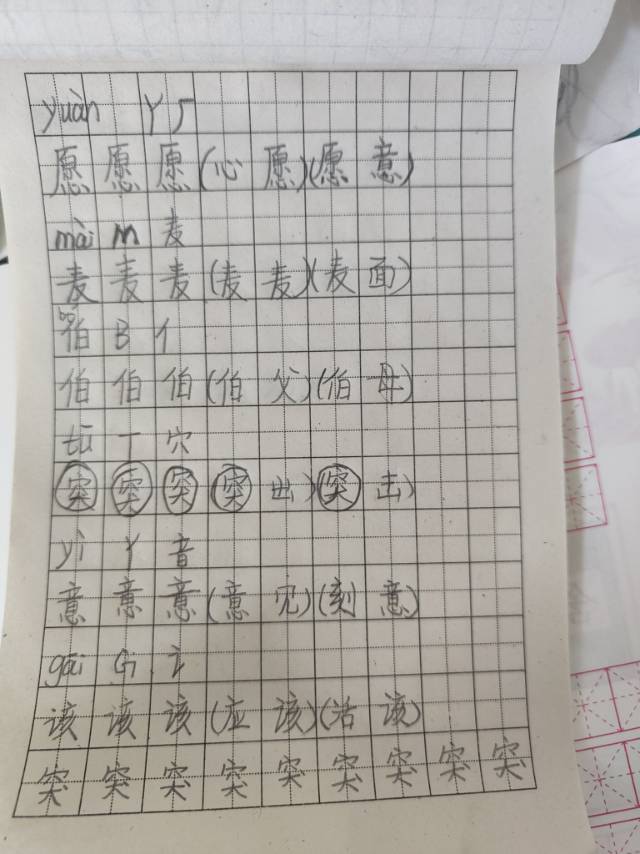 yuàn Y 厂
愿 愿 愿 (心 愿)(愿 意)
mài M 龶
麦 麦 麦 (麦 麦)(麦 面)
bó B 亻
伯 伯 伯 (伯 父)(伯 母)
tū T 穴
突 突 突 (突 出)(突 击)
yì Y 音
意 意 意 (意 见)(刻 意)
gāi G 讠
该 该 该 (应 该)(活 该)
突 突 突 突 突 突 突 突 突